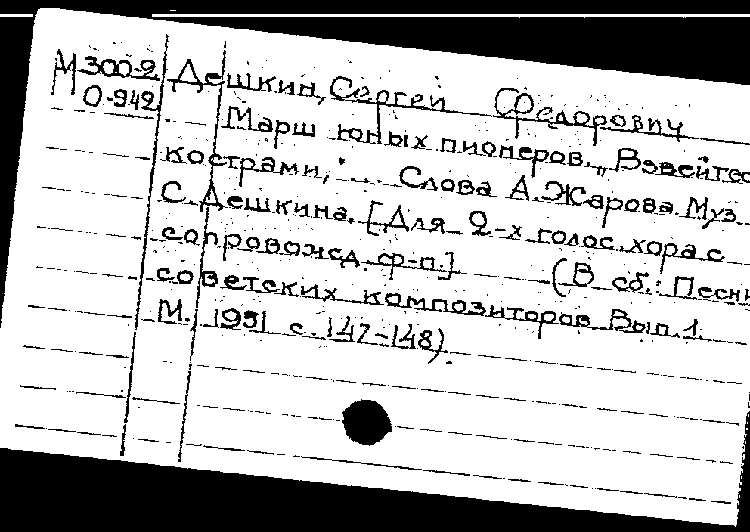 М 300-2 Дешкин, Сергей Федорович
О-942 Марш юных пионеров. „Взвейтес
кострами,"... Слова А. Жарова. Муз.
С. Дешкина. [Для 2-х голос. хора с
сопровожд. ф-п.] (В сб.: Песни
советских композиторов. Вып. 1.
М., 1951 с. 147-148).